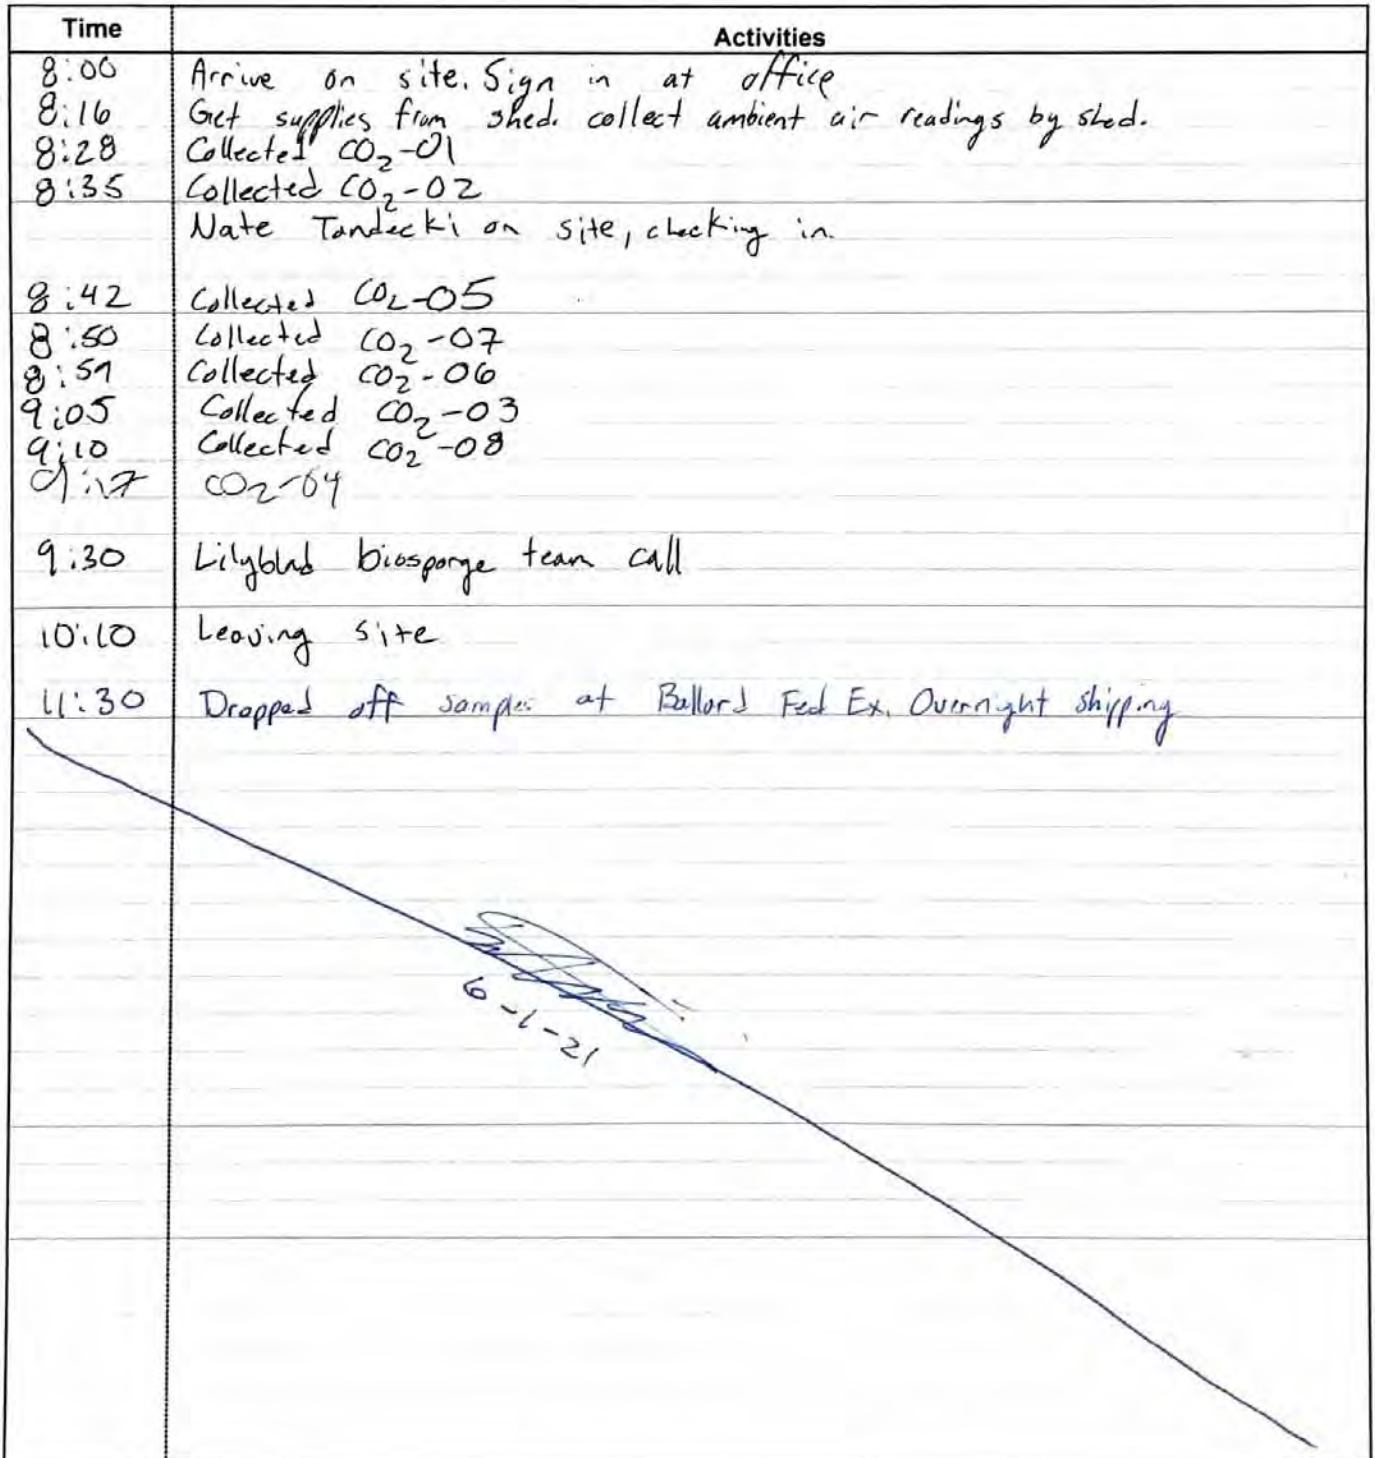 Time Activities
8:00 Arrive on site. Sign in at office
8:16 Get supplies from shed. collect ambient air readings by shed.
8:28 Collected CO2-01
8:35 Collected CO2-02
Nate Tandecki on site, checking in.
8:42 Collected CO2-05
8:50 Collected CO2-07
8:59 Collected CO2-06
9:05 Collected CO2-03
9:10 Collected CO2-08
9:17 CO2-04
9:30 Lilyblad biosparge team call
10:10 Leaving site
11:30 Dropped off samples at Ballard Fed Ex. Overnight shipping
6-1-21